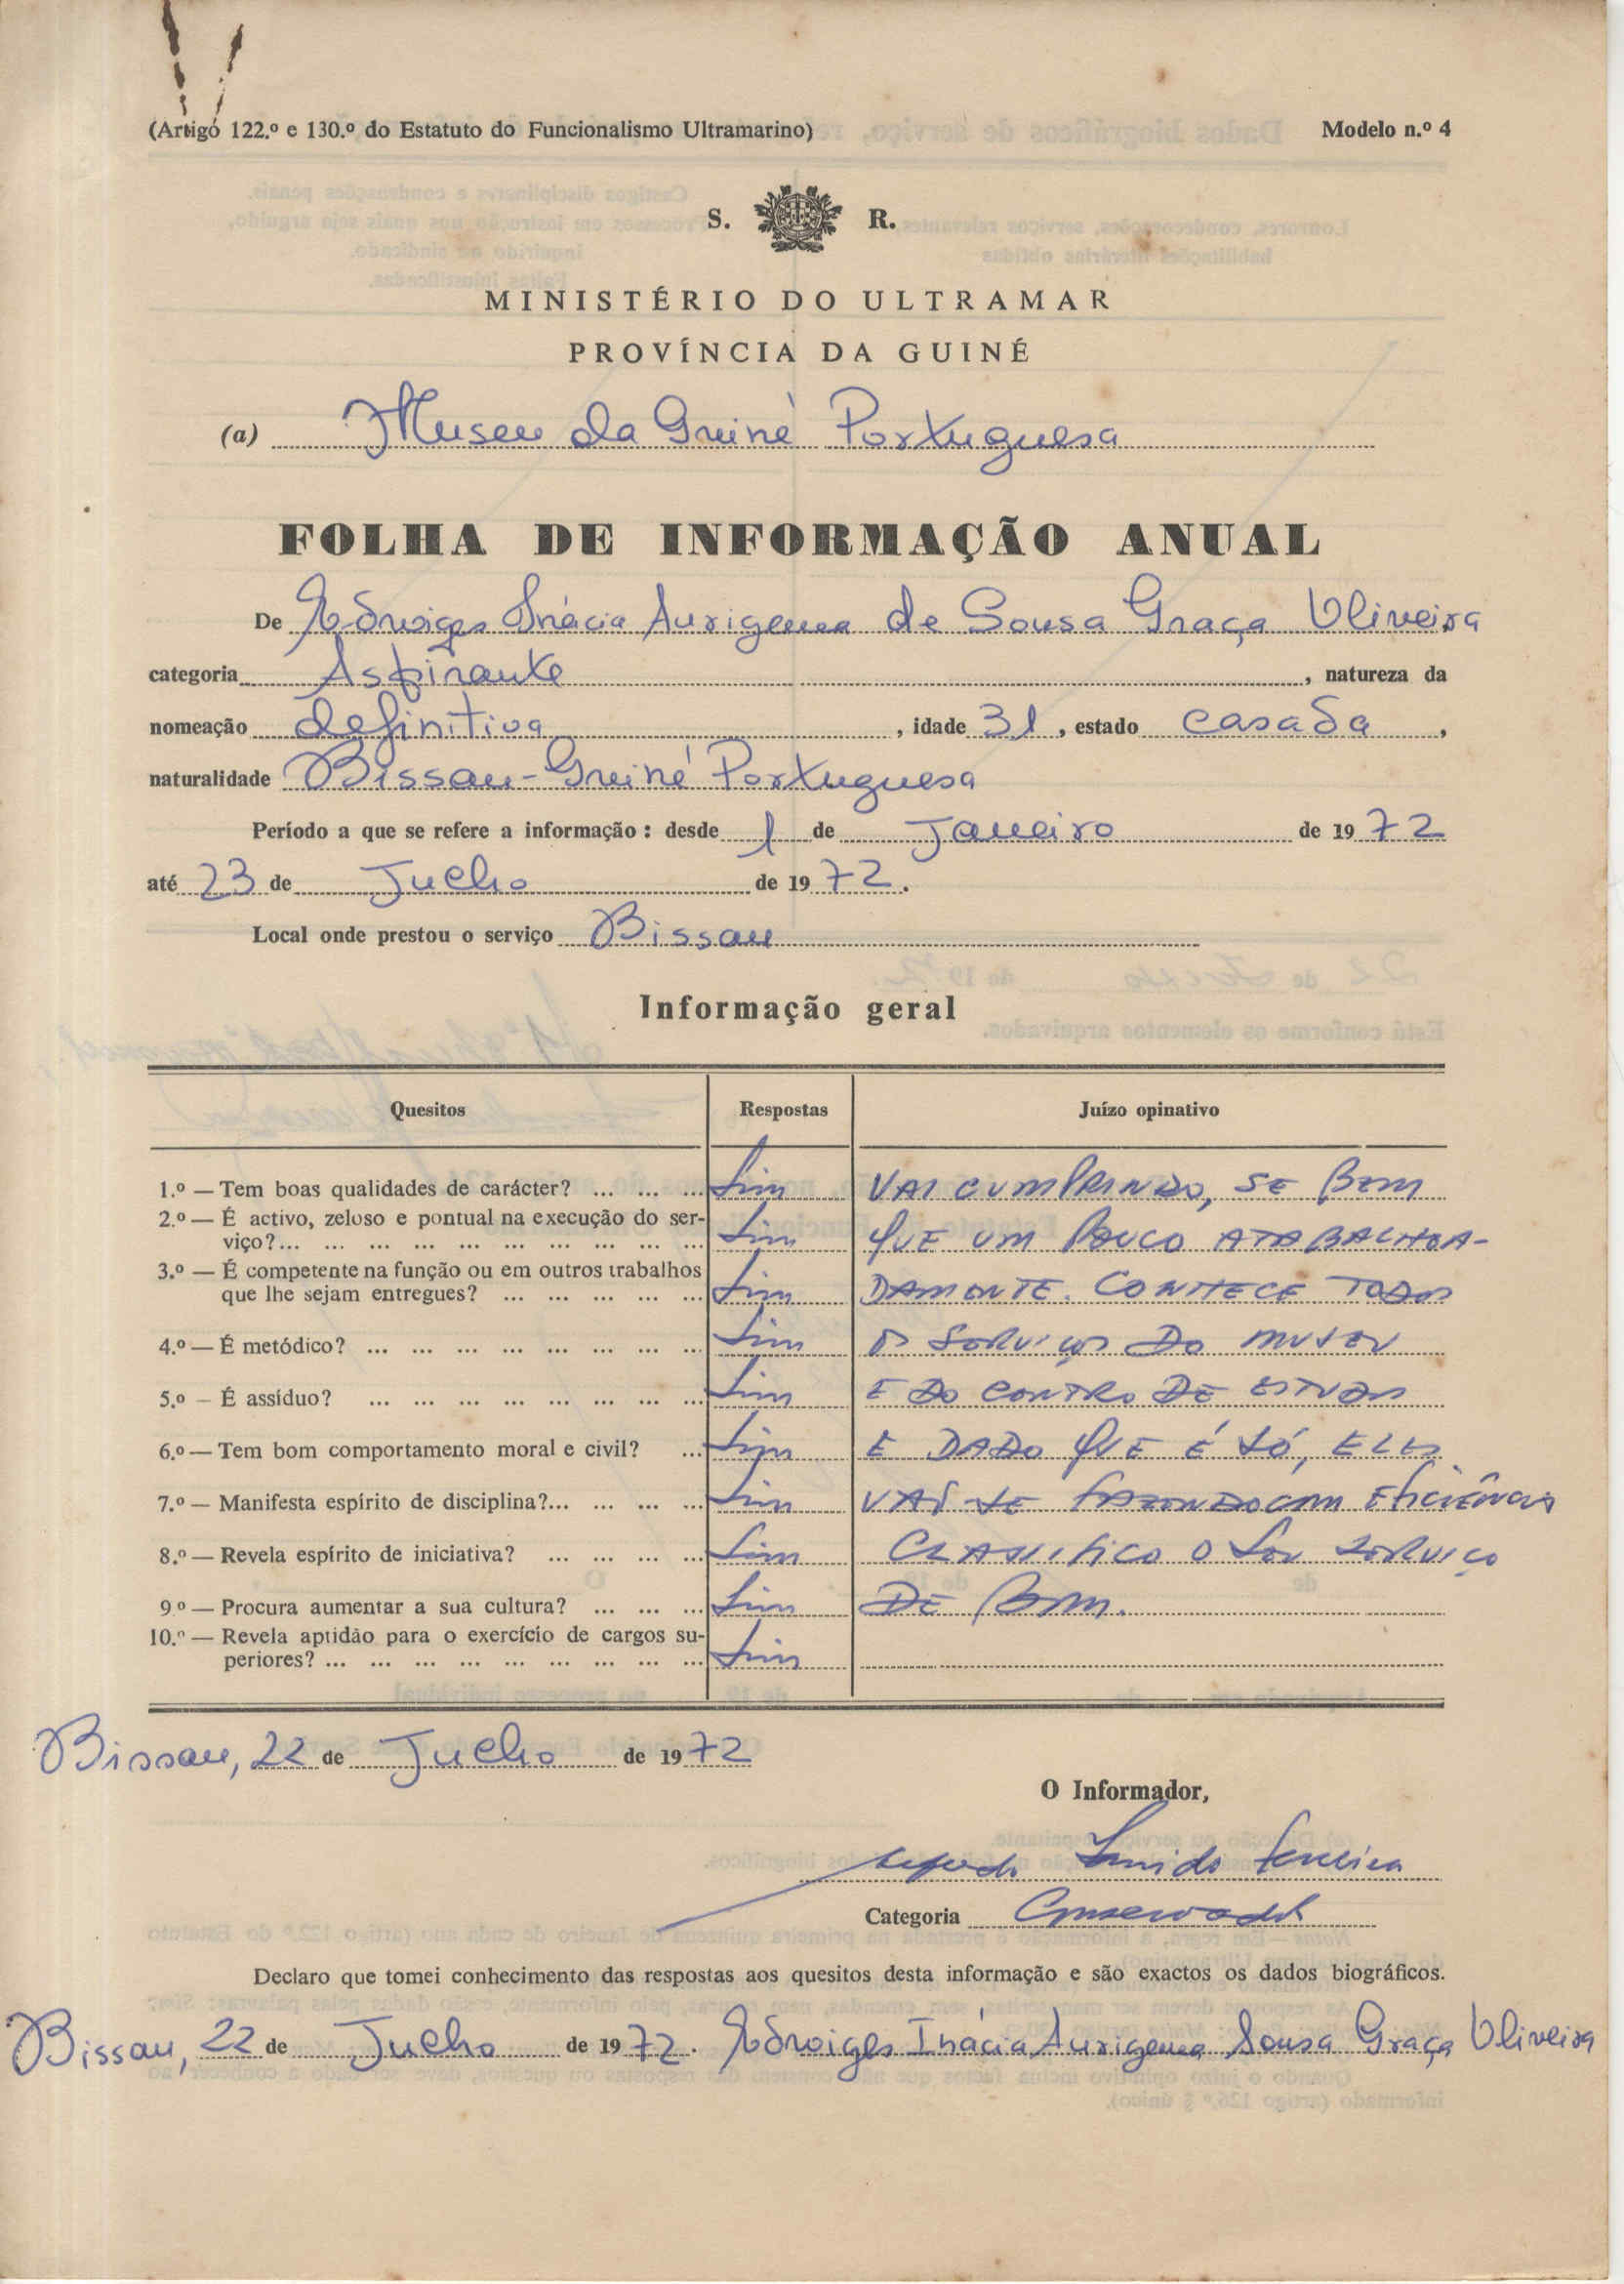 (Artigo 122.º e 130.º do Estatuto do Funcionalismo Ultramarino) Modelo n.º 4
S. R.
MINISTÉRIO DO ULTRAMAR
PROVÍNCIA DA GUINÉ
(a) Museu da Guiné Portuguesa
FOLHA DE INFORMAÇÃO ANUAL
De Edwiges Inácia Aurigema de Sousa Graça Oliveira
categoria Aspirante, natureza da
nomeação definitiva, idade 31, estado casada,
naturalidade Bissau-Guiné Portuguesa
Período a que se refere a informação: desde 1 de Janeiro de 1972
até 23 de Julho de 1972.
Local onde prestou o serviço Bissau
Informação geral
Quesitos Respostas Juízo opinativo
1.º — Tem boas qualidades de carácter? ... ... ... Sim VAI CUMPRINDO, SE BEM
2.º — É activo, zeloso e pontual na execução do ser-
viço?... ... ... ... ... ... ... ... ... ... Sim QUE UM POUCO ATABALHOA-
3.º — É competente na função ou em outros trabalhos
que lhe sejam entregues? ... ... ... ... ... Sim DAMENTE. CONHECE TODOS
4.º — É metódico? ... ... ... ... ... ... ... ... Sim OS SERVIÇOS DO MUSEU
5.º – É assíduo? ... ... ... ... ... ... ... ... Sim E DO CENTRO DE ESTUDOS
6.º — Tem bom comportamento moral e civil? ... Sim E DADO QUE É SÓ, ELES
7.º — Manifesta espírito de disciplina?... ... ... ... Sim VAI-SE FAZENDO COM EFICIÊNCIA
8.º — Revela espírito de iniciativa? ... ... ... ... Sim CLASSIFICO O SEU SERVIÇO
9º — Procura aumentar a sua cultura? ... ... ... Sim DE BOM.
10.º — Revela aptidão para o exercício de cargos su-
periores? ... ... ... ... ... ... ... ... ... Sim
Bissau, 22 de Julho de 1972
O Informador,
Categoria Conservador
Declaro que tomei conhecimento das respostas aos quesitos desta informação e são exactos os dados biográficos.
Bissau, 22 de Julho de 1972. Edwiges Inácia Aurigema Sousa Graça Oliveira